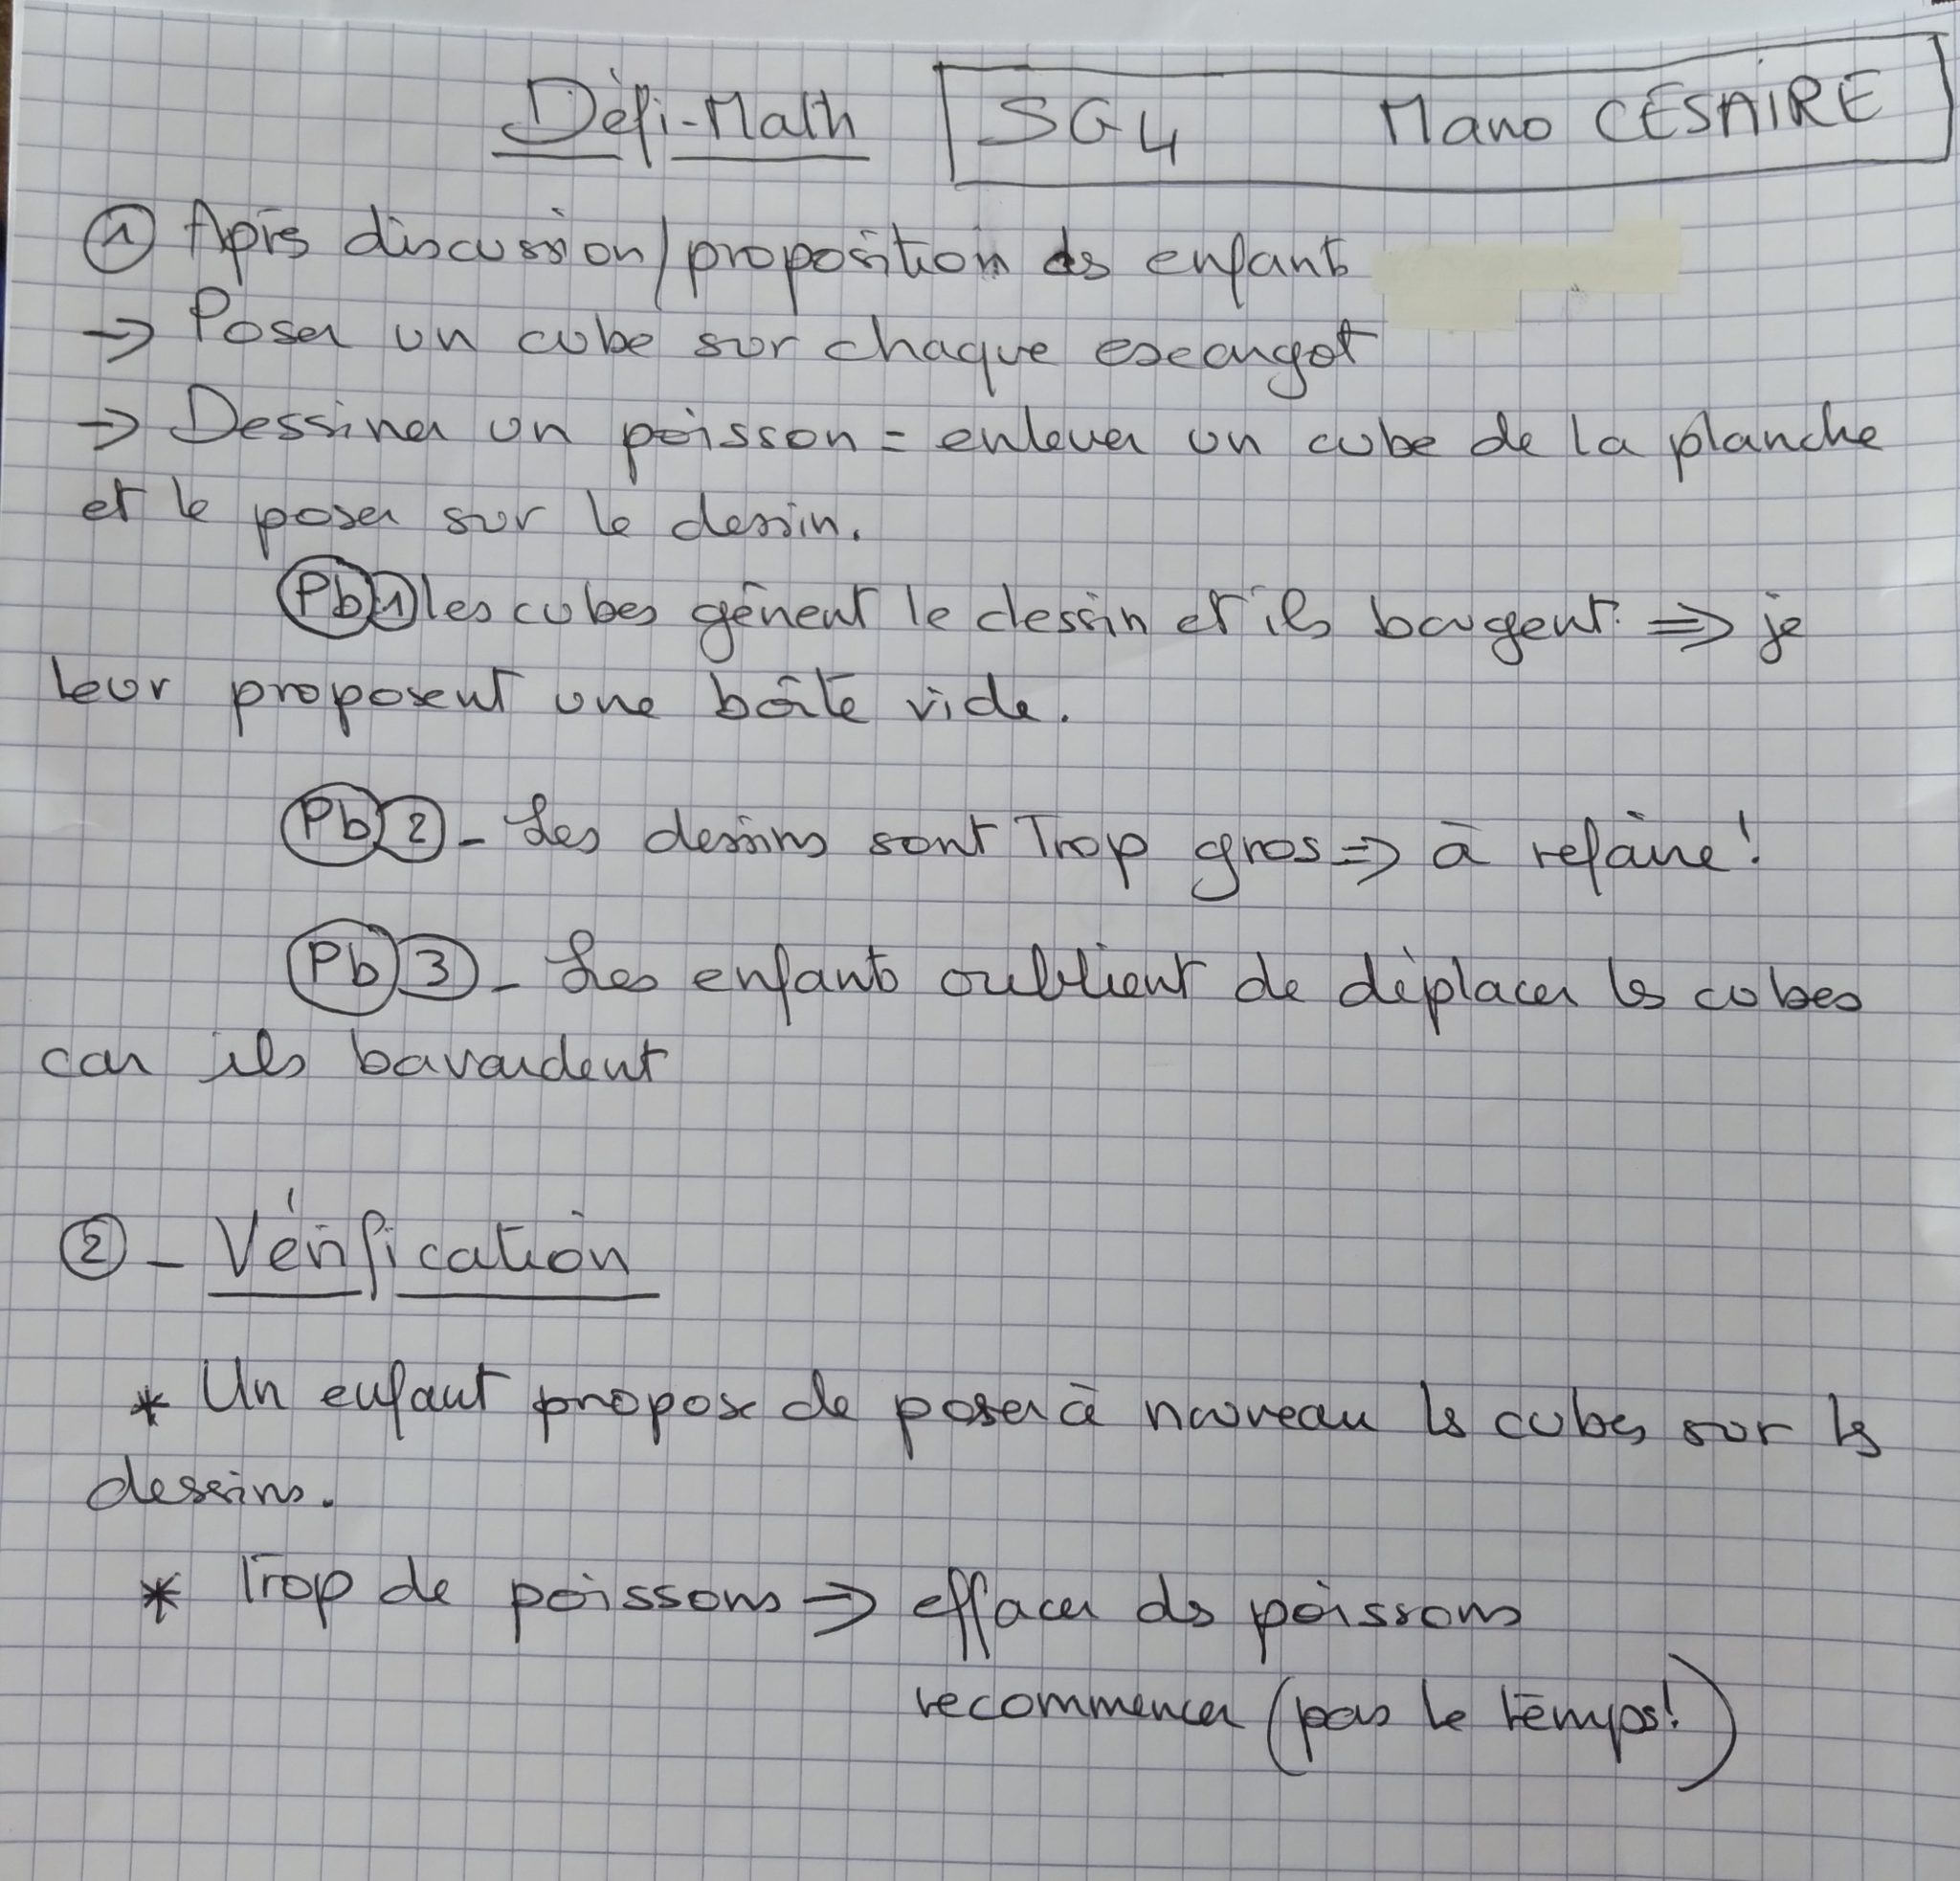 Défi-Math SG4 Mano CÉSAIRE
① Après discussion/proposition des enfants
→ Poser un cube sur chaque escargot
→ Dessiner un poisson = enlever un cube de la planche
et le poser sur le dessin.
Pb 1 les cubes gênent le dessin et ils bougent. ⇒ je
leur proposent une boîte vide.
Pb 2 - Les dessins sont Trop gros ⇒ à refaire !
Pb 3 - Les enfants oublient de déplacer les cubes
car ils bavardent
② - Vérification
* Un enfant propose de poser à nouveau les cubes sur les
dessins.
* Trop de poissons ⇒ effacer des poissons
recommencer (pas le temps!)